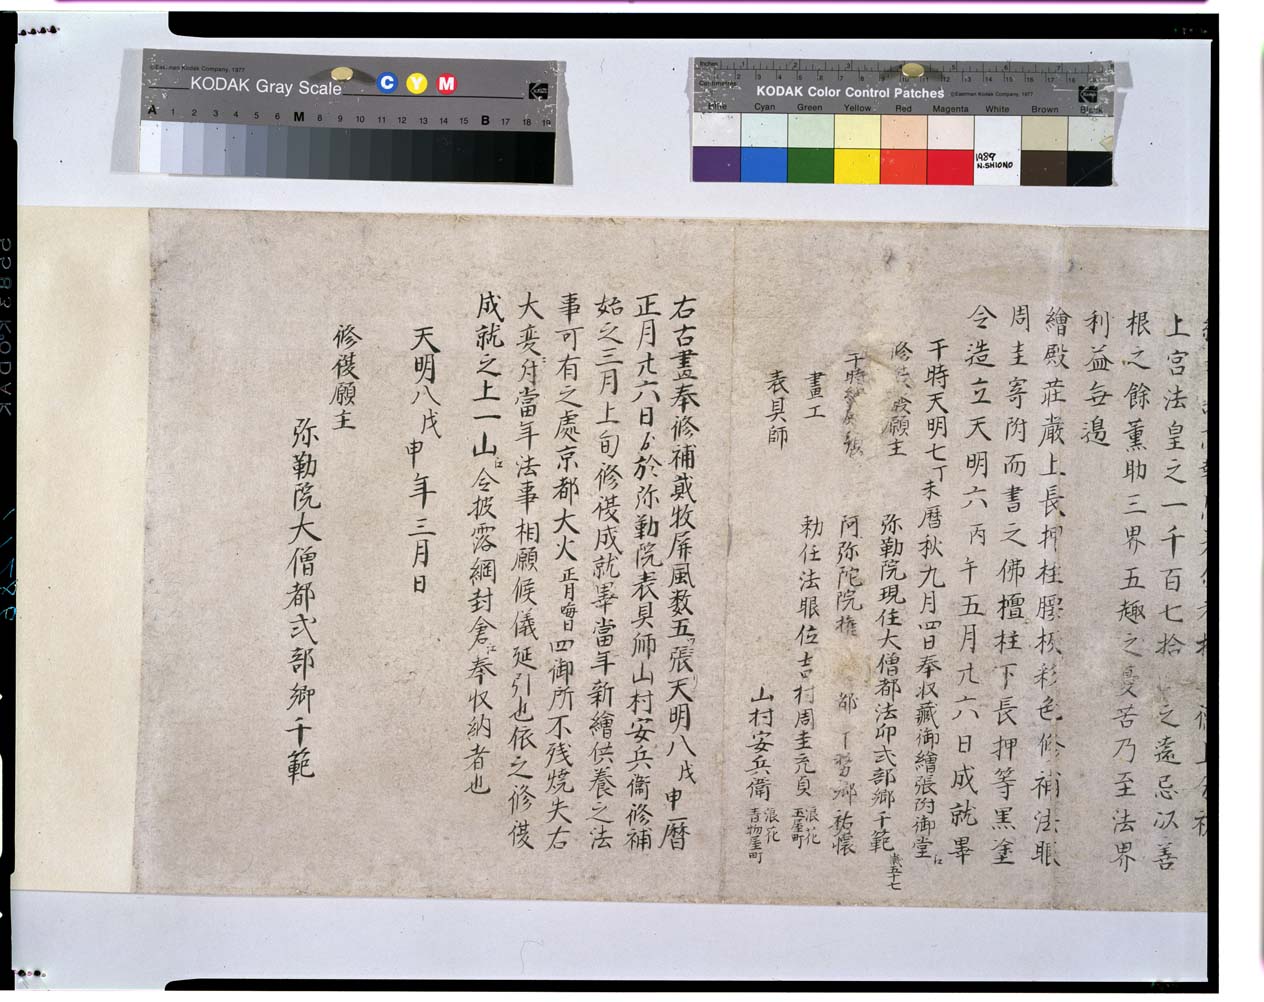 ©Eastman Kodak Company, 1977
KODAK Gray Scale
C Y M
A 1 2 3 4 5 6 M 8 9 10 11 12 13 14 15 B 17 18 19
KODAK Color Control Patches
©Eastman Kodak Company, 1977
Blue Cyan Green Yellow Red Magenta White Brown Black
1989
N.SHIONO
上宮法皇之一千百七拾 之遠忌以善
根之餘薫助三界五趣之憂苦乃至法界
利益無邊
繪殿荘嚴上長押柱腰板彩色修補法眼
周圭寄附而書之佛壇柱下長押等黒塗
令造立天明六丙午五月廿六日成就畢
干時天明七丁未暦秋九月四日奉収蔵御繪張附御堂江
修 願主 弥勒院現住大僧都法印弐部卿千範 歳五十七
干時 阿弥陀院権 卿祐懐
畫工 勅任法眼位吉村周圭充貞 浪花玉屋町
表具師 山村安兵衛 浪花青物屋町
右古畫奉修補貳牧屏風数五張天明八戊申暦
正月廿六日ゟ於弥勒院表具師山村安兵衛修補
始之三月上旬修復成就畢當年新繪供養之法
事可有之處京都大火正月晦日四御所不残焼失右
大変ニ付當年法事相願候儀延引也依之修復
成就之上一山江令披露綱封倉江奉収納者也
天明八戊申年三月日
修復願主
弥勒院大僧都弐部卿千範